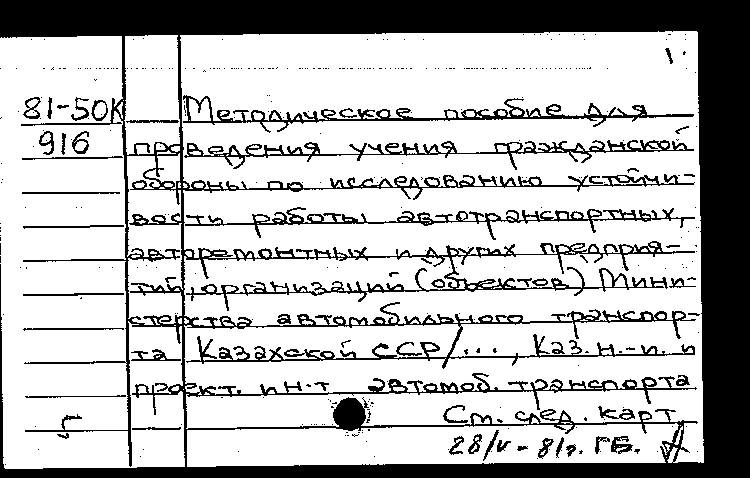 1.
81-50К Методическое пособие для
916 проведения учения гражданской
обороны по исследованию устойчи-
вости работы автотранспортных,
авторемонтных и других предприя-
тий, организаций (объектов) Мини-
стерства автомобильного транспор-
та Казахской ССР/..., Каз. н.-и. и
проект. ин-т автомоб. транспорта
См. след. карт.
28/V-81г. ГБ.